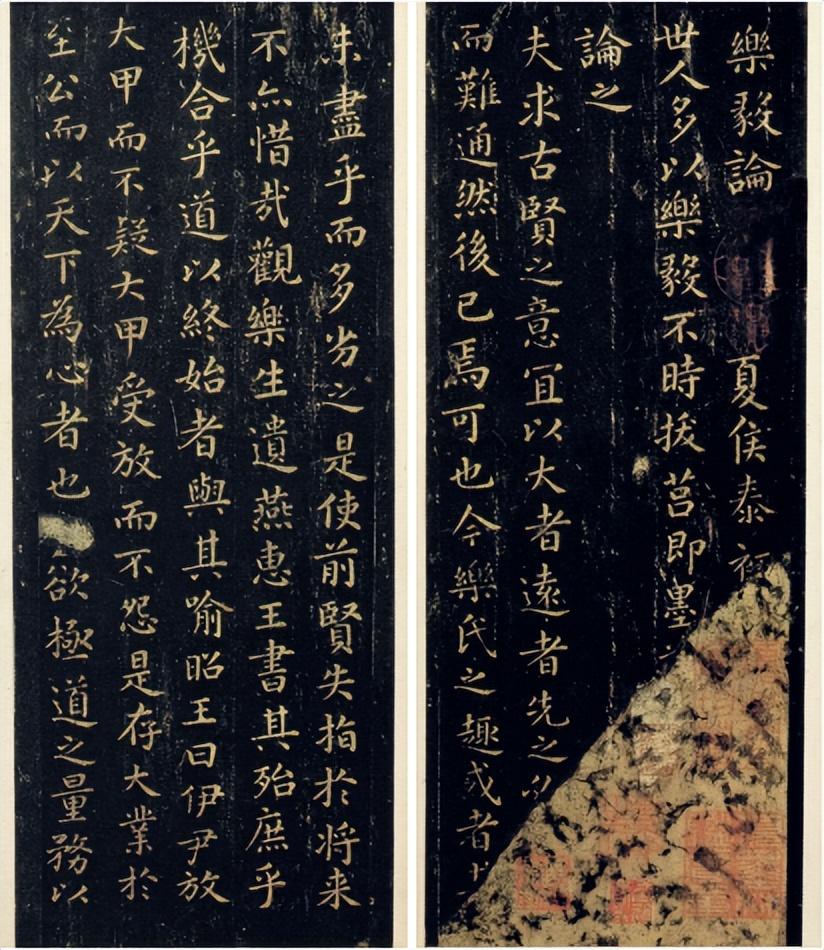 樂毅論 夏侯泰
世人多以樂毅不時拔莒即墨
論之
夫求古賢之意冝以大者遠者先之
而難通然後已焉可也今樂氏之趣或者
未盡乎而多劣之是使前賢失指於将来
不亦惜哉觀樂生遺燕惠王書其殆庶乎
機合乎道以終始者與其喻昭王曰伊尹放
大甲而不疑大甲受放而不怨是存大業於
至公而以天下為心者也 欲極道之量務以